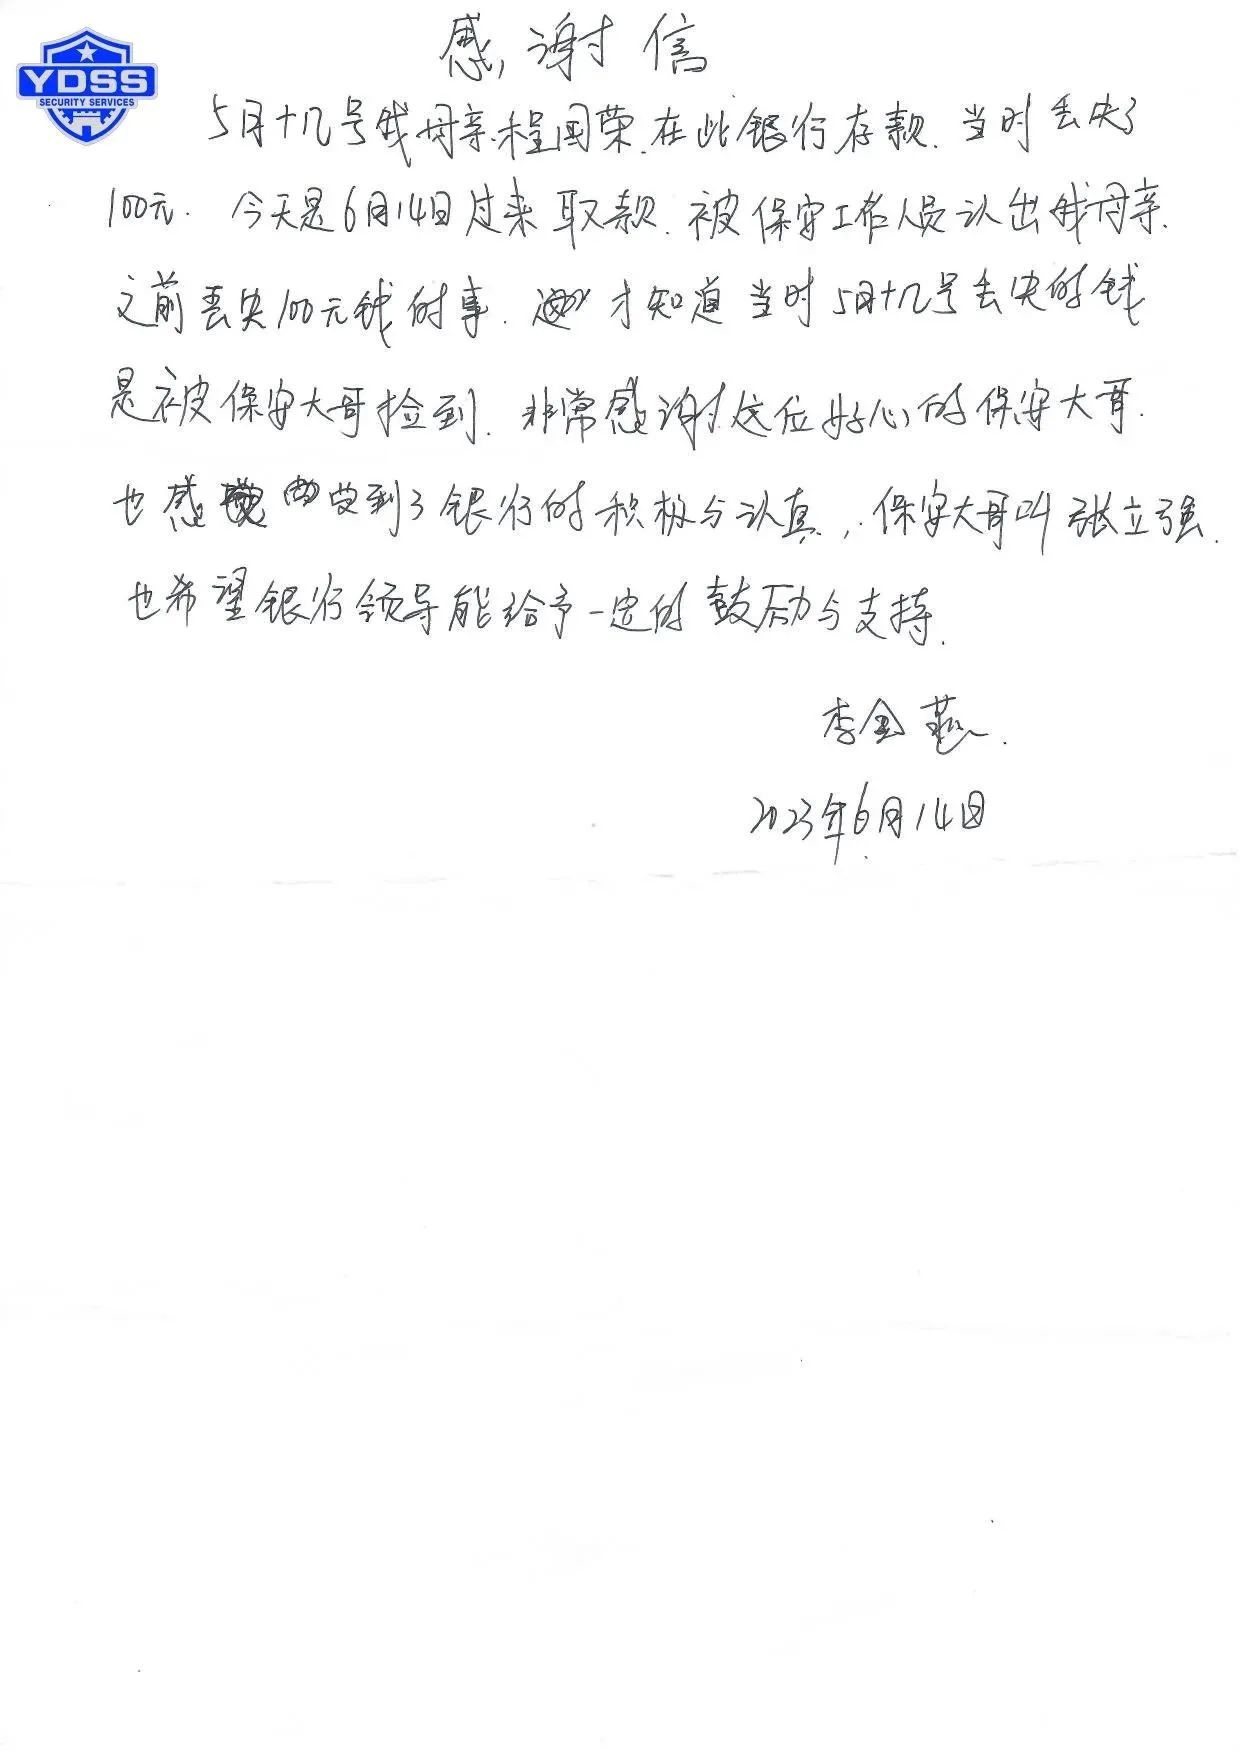 YDSS
SECURITY SERVICES
感谢信
5月十几号我母亲程国荣.在此银行存款.当时丢失了
100元.今天是6月14日过来取款.被保安工作人员认出我母亲.
之前丢失100元钱的事.才知道当时5月十几号丢失的钱
是被保安大哥捡到.非常感谢这位好心的保安大哥.
也感受到了银行的积极与认真,保安大哥叫张立强.
也希望银行领导能给予一定的鼓励与支持.
李金燕.
2023年6月14日